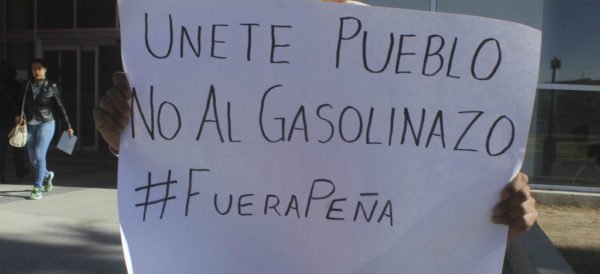 UNETE PUEBLO
NO AL GASOLINAZO
#FUERAPEÑA